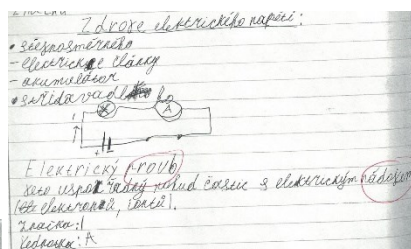 Zdroje elektrického napětí:
• stejnosměrného
- elektrické články
- akumulátor
• střídavadlo
A
+
Elektrický proub
uspořádaný pohud částic s elektrickým nádosem
(elektronů, iontů).
Značka: I
Jednotka: A